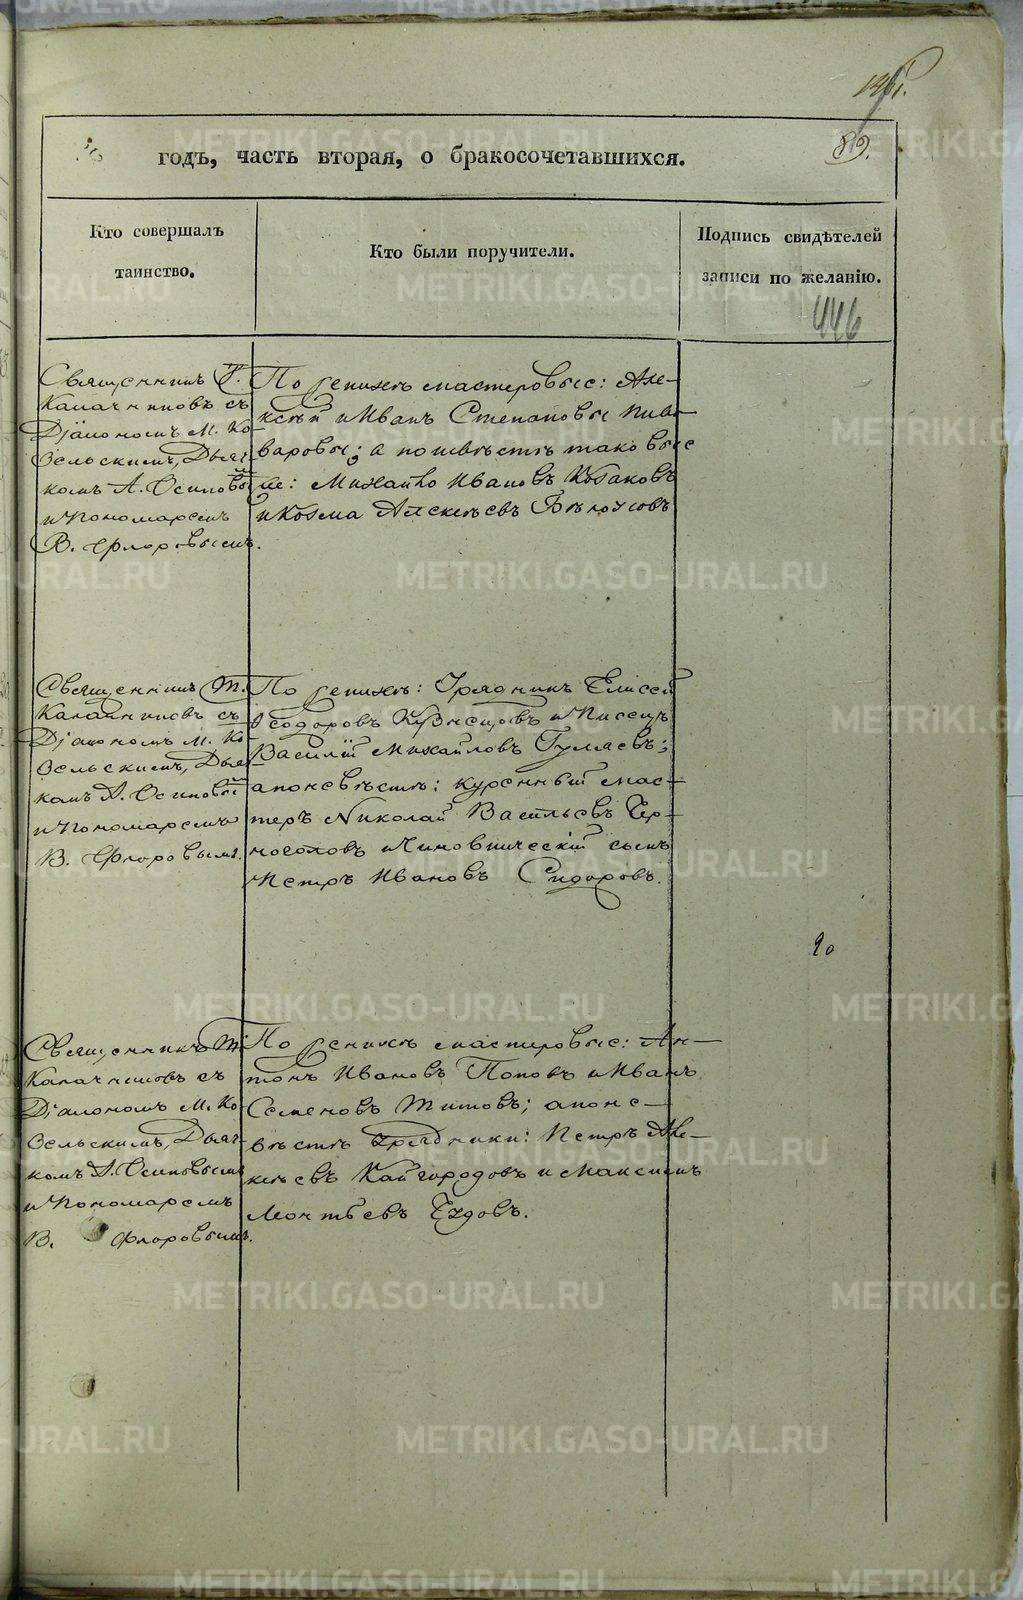 89.
годъ, часть вторая, о бракосочетавшихся.
Кто совершалъ
таинство.
Кто были поручители.
Подпись свидѣтелей
записи по желанію.
446
Священникъ Т.
Калачниковъ съ
Діакономъ М. Ко-
зельскимъ, Дьяч-
комъ А. Осиповы
и Пономаремъ
В. Флоровымъ.
По женихѣ мастеровые: Але-
ксѣй и Иванъ Степановы Пиво
варовы; а по невѣстѣ таковые
же: Михайло Ивановъ Козаковъ
и Козма Алексѣевъ Бѣлоусовъ
Священникъ Т.
Калачниковъ съ
Діакономъ М. Ко-
зельскимъ, Дьяч-
комъ А. Осиповы
и Пономаремъ
В. Флоровымъ.
По женихѣ: Урядникъ Елисей
Ѳеодоровъ Кузнецовъ и Писецъ
Василій Михайловъ Гуляевъ;
а по невѣстѣ: куренный мас-
теръ Николай Васильевъ Чер-
ноголовъ и Чиновническій сынъ
Петръ Ивановъ Сидоровъ.
20
Священникъ Т.
Калачниковъ съ
Діакономъ М. Ко-
зельскимъ, Дьяч-
комъ А. Осиповымъ
и Пономаремъ
В. Флоровымъ.
По женихѣ мастеровые: Ан-
тонъ Ивановъ Поповъ и Иванъ
Семеновъ Титовъ; а по не-
вѣстѣ Урядники: Петръ Але-
ксѣевъ Кайгородовъ и Максимъ
Ездовъ.
METRIKI.GASO-URAL.RU